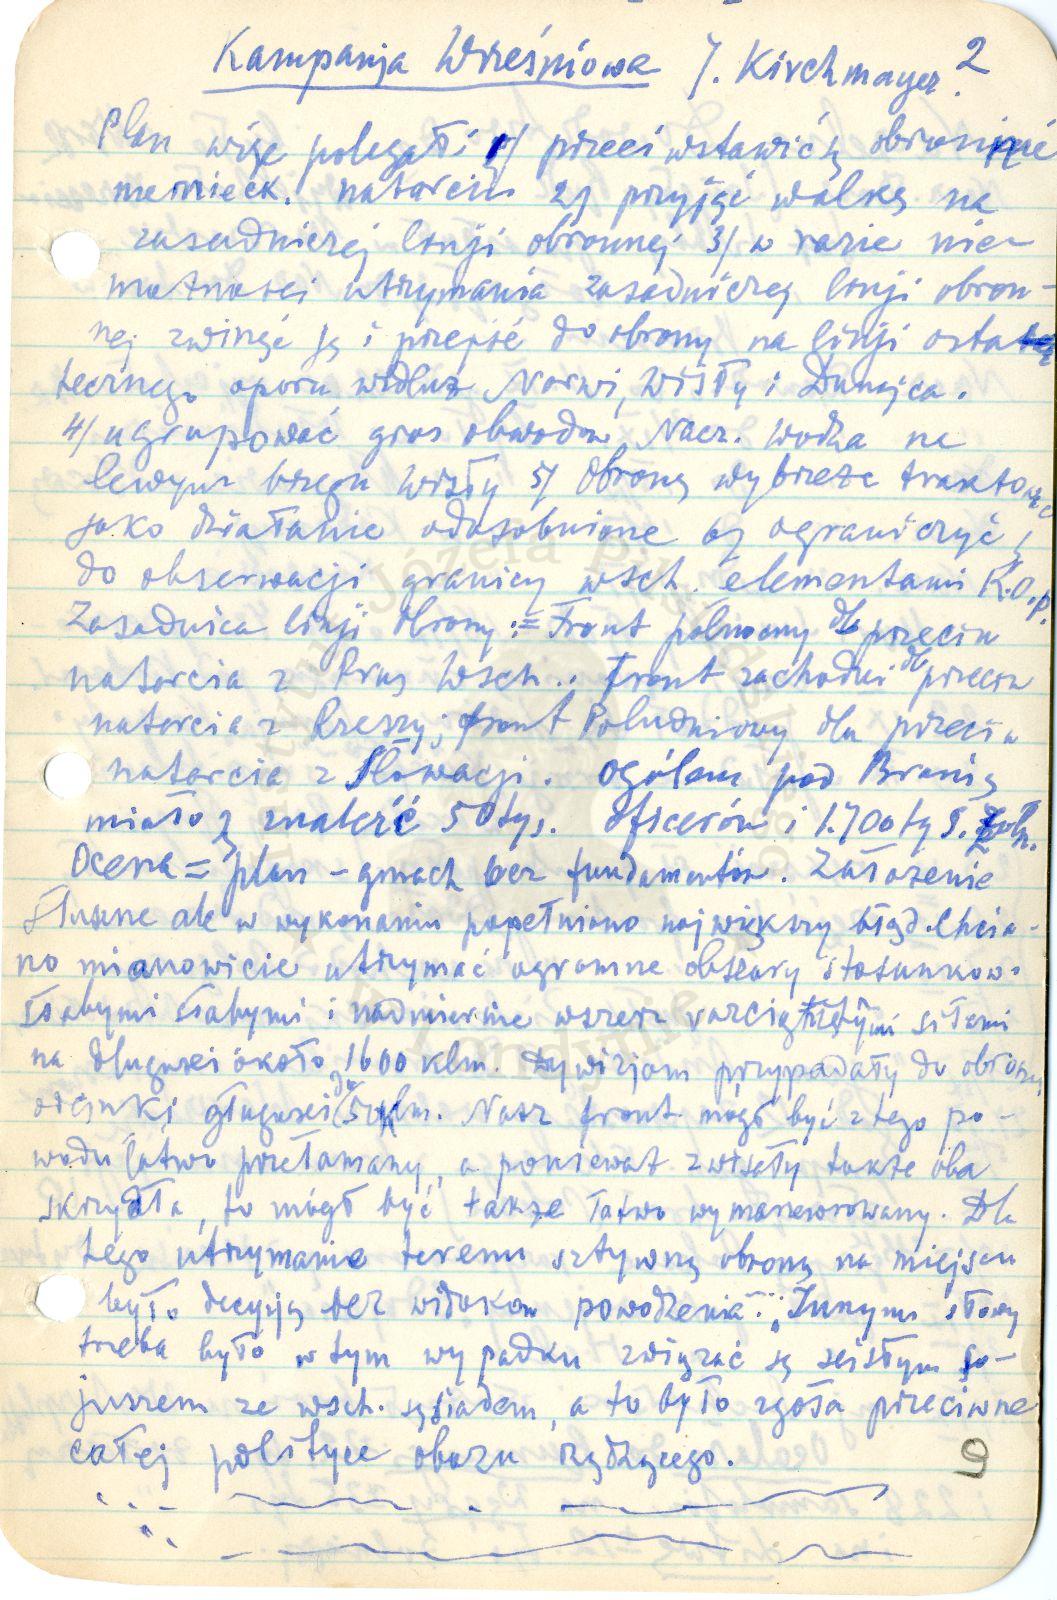 Kampanja Wrześniowa J. Kirchmayer. 2
Plan więc polegał: 1/ przeciwstawić się
niemieck. natarciu 2/ przyjąć walkę na
zasadniczej linji obronnej 3/ w razie nie-
możności utrzymania zasadniczej linji obron-
nej zwinąć ją i przejść do obrony na linji osta
tecznego oporu wdłuż Narwi, Wisły i Dunajca.
4/ ugrupować gros obwodów Nacz. Wodza na
lewym brzegu Wisły 5/ Obronę wybrzeża traktować
jako działanie odosobnione 6/ ograniczyć się
do obserwacji granicy wsch. elementami K.O.P.
Zasadnicza linji obrony := Front północny dla przecin
natarcia z Prus Wsch.. front zachodni dla przecin
natarcia z Rzeszy; front Południowy dla przecin
natarcia z Słowacji. Ogółem pod Bronią
miało się znaleźć 50 tys. oficerów i 1.700 tyś. Żołn.
Ocena = plan - gmach bez fundamentów. Założenie
słuszne ale w wykonaniu popełniono największy błąd. Chcia-
no mianowicie utrzymać ogromne obszary stosunkow.
słabymi i nadmiernie wszerz rozciągniętymi siłami
na długości około 1600 klm. Dywizjom przypadały do obrony
odcinki długości do 50 klm. Nasz front mógł być z tego po-
wodu łatwo przełamany, a ponieważ zwisały także oba
skrzydła, to mógł być także łatwo wymanewrowany. Dla
tego utrzymanie terenu sztywną obroną na miejscu
było decyzją bez widoków powodzenia. "Innymi słowy
trzeba było w tym wypadku związać się ścisłym so-
juszem ze wsch. sąsiadem, a to było zgoła przeciwne
całej polityce obozu rządzącego.
9
Instytut Józefa Piłsudskiego
w Londynie